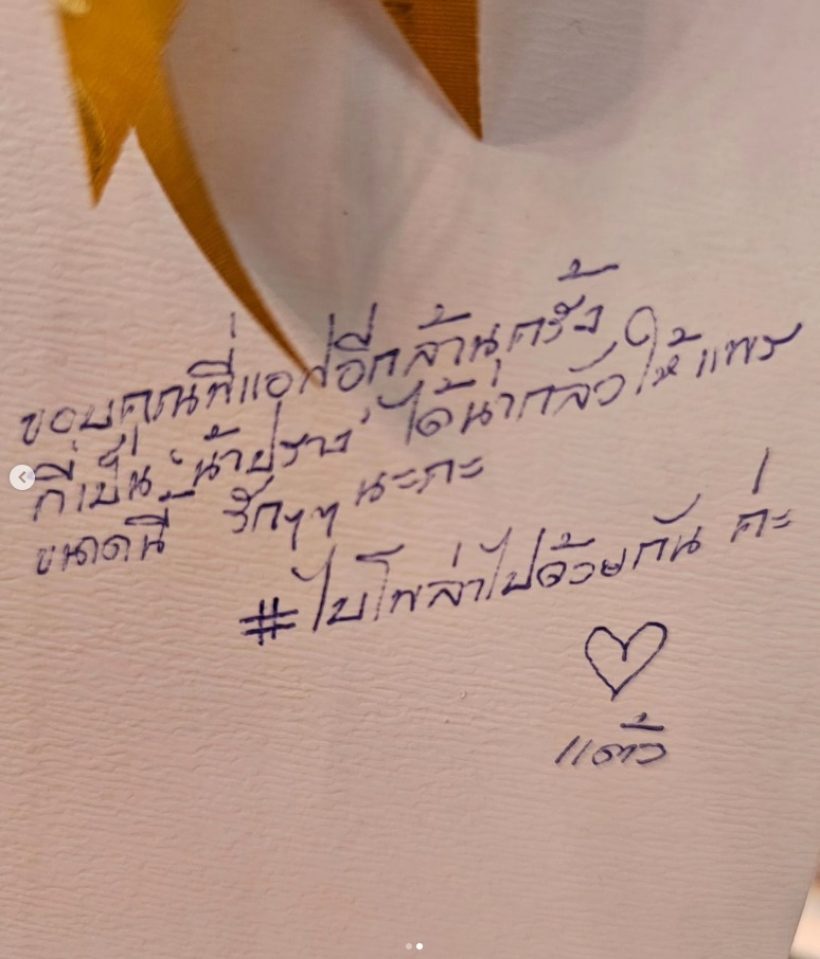 ขอบคุณพี่แอนอีกล้านครั้ง
ที่เป็น "น้าปราง" ได้น่ากลัวให้แพร
ขนาดนี้ รักๆๆ นะคะ
#ไบโพล่าไปด้วยกัน ค่ะ
แต้ว